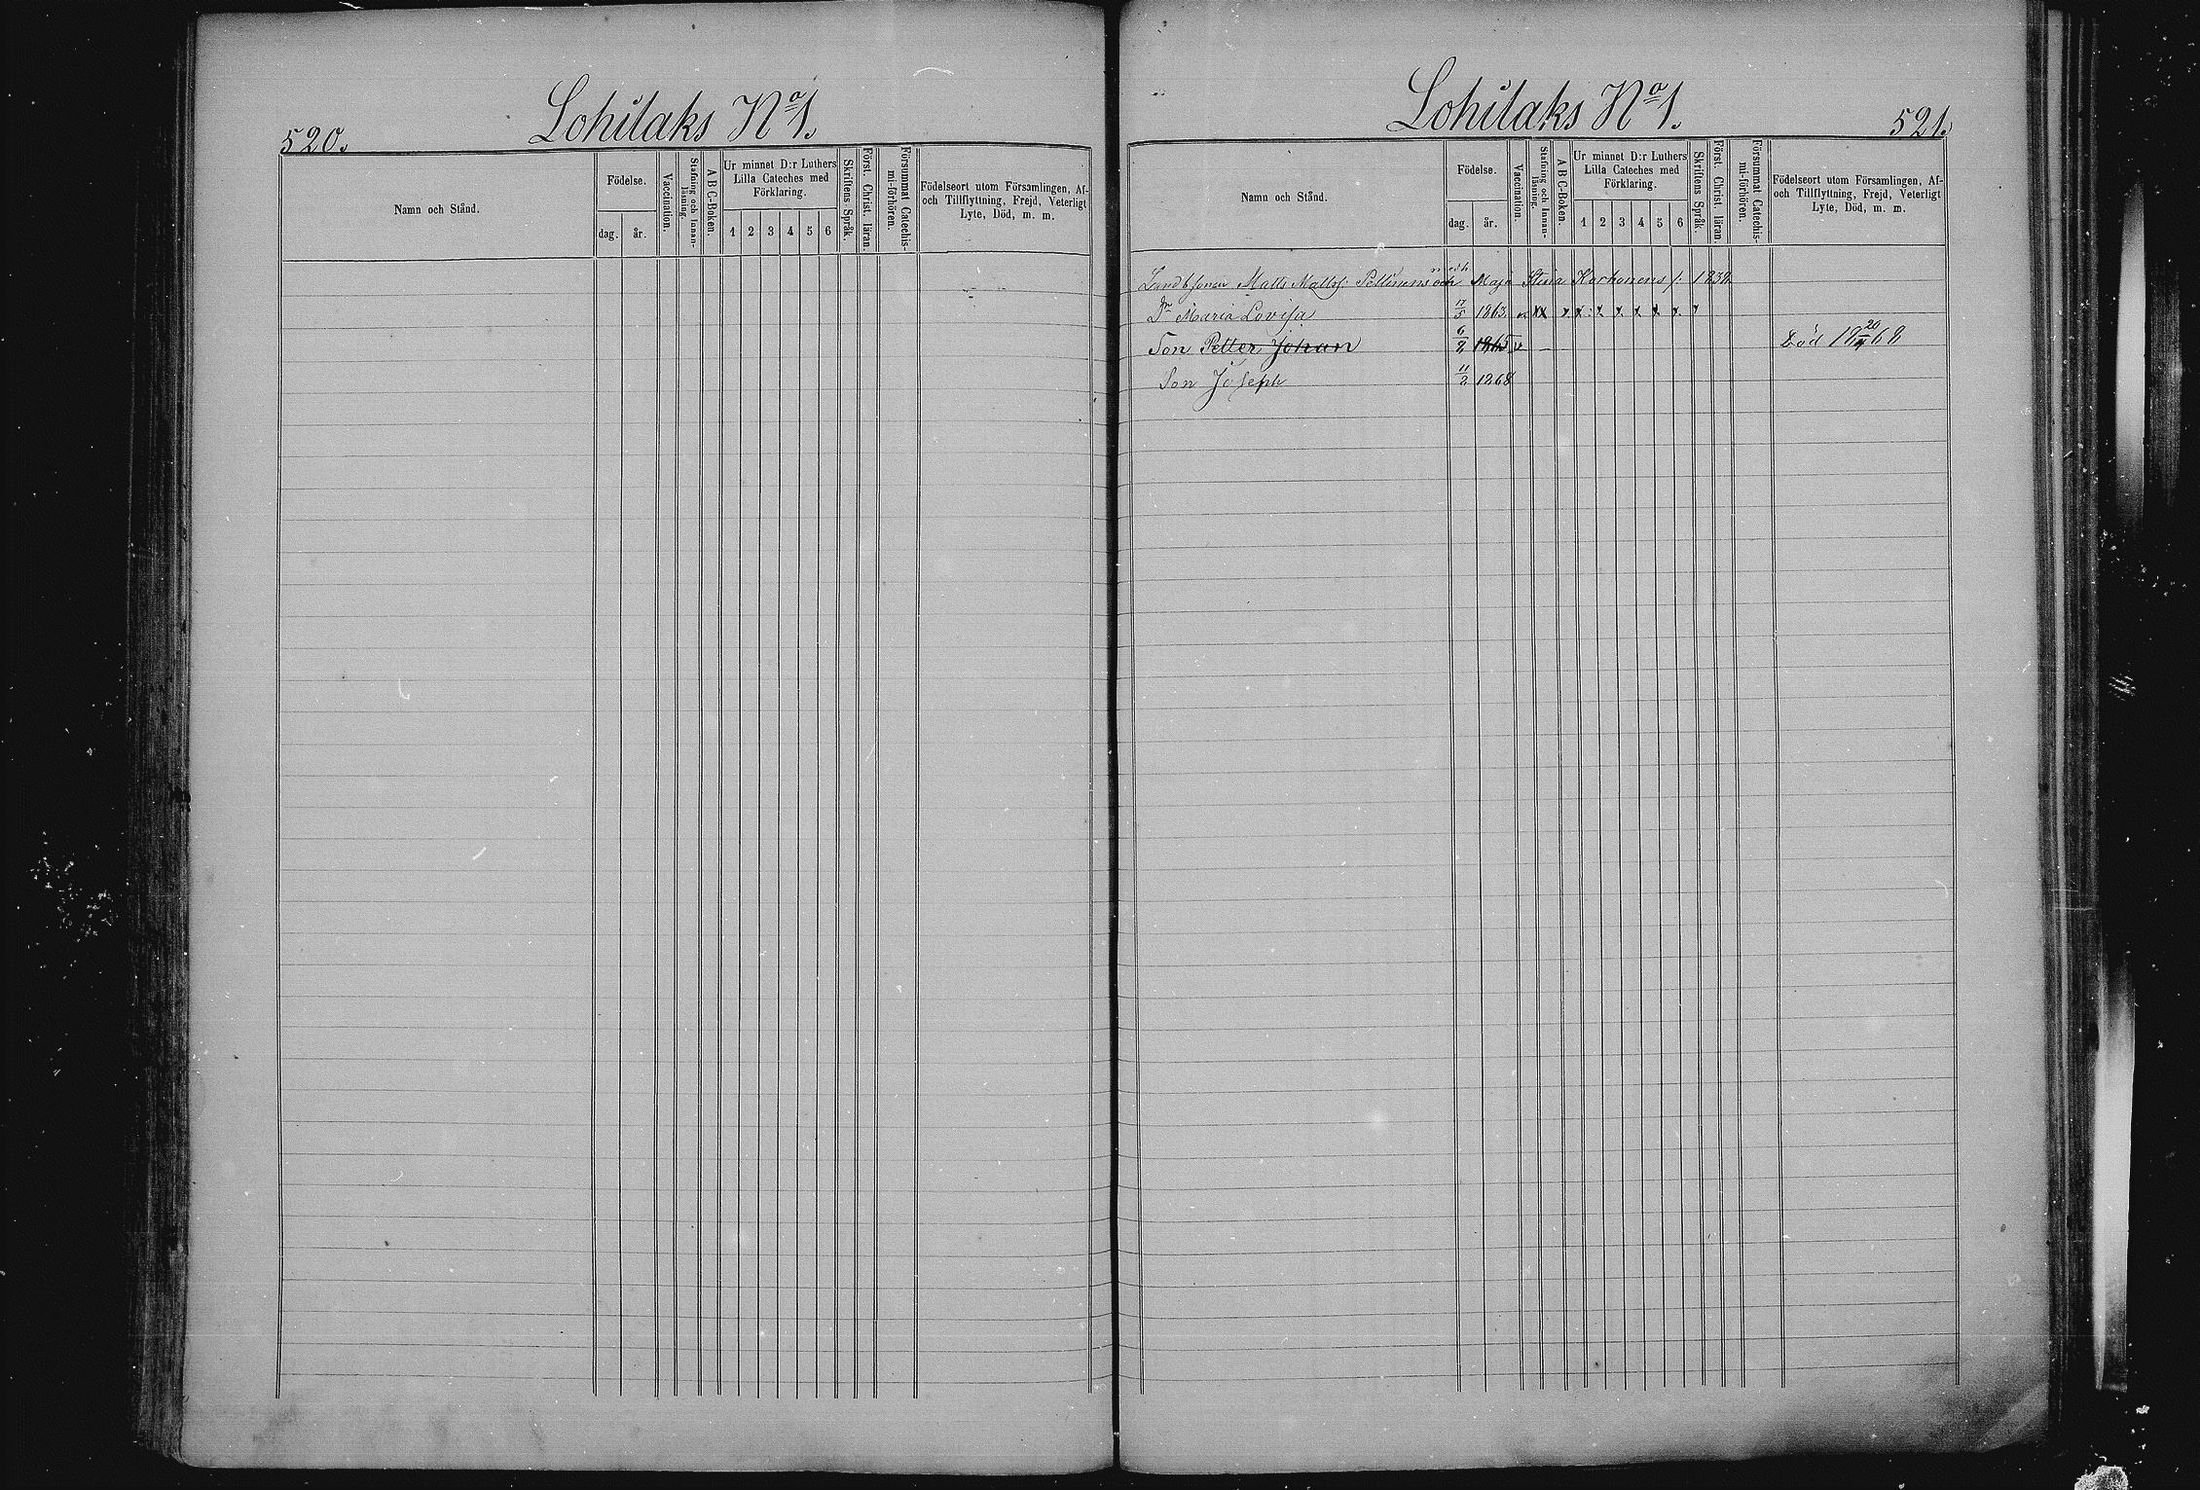 520.
Lohilaks No 1.
Namn och Stånd.
Födelse.
dag.
år.
Vaccination.
Stafning och Innan-
läsning.
A B C-Boken.
Ur minnet D:r Luthers
Lilla Cateches med
Förklaring.
1 2 3 4 5 6
Skriftens Språk.
Först. Christ. läran.
Försummat Catechis-
mi-förhören.
Födelseort utom Församlingen, Af-
och Tillflyttning, Frejd, Veterligt
Lyte, Död, m. m.
Lohilaks No 1.
521.
Namn och Stånd.
Födelse.
dag.
år.
Vaccination.
Stafning och Innan-
läsning.
A B C-Boken.
Ur minnet D:r Luthers
Lilla Cateches med
Förklaring.
1 2 3 4 5 6
Skriftens Språk.
Först. Christ. läran.
Försummat Catechis-
mi-förhören.
Födelseort utom Församlingen, Af-
och Tillflyttning, Frejd, Veterligt
Lyte, Död, m. m.
Matts Mattss: Pellinens och Maja Stina Korhonens
Dr Maria Lovisa 17/5 1863. x x x x x x x x x
Son Petter Johan 6/2 1865 v Död 18 20/4 68
Son Joseph 11/2 1868